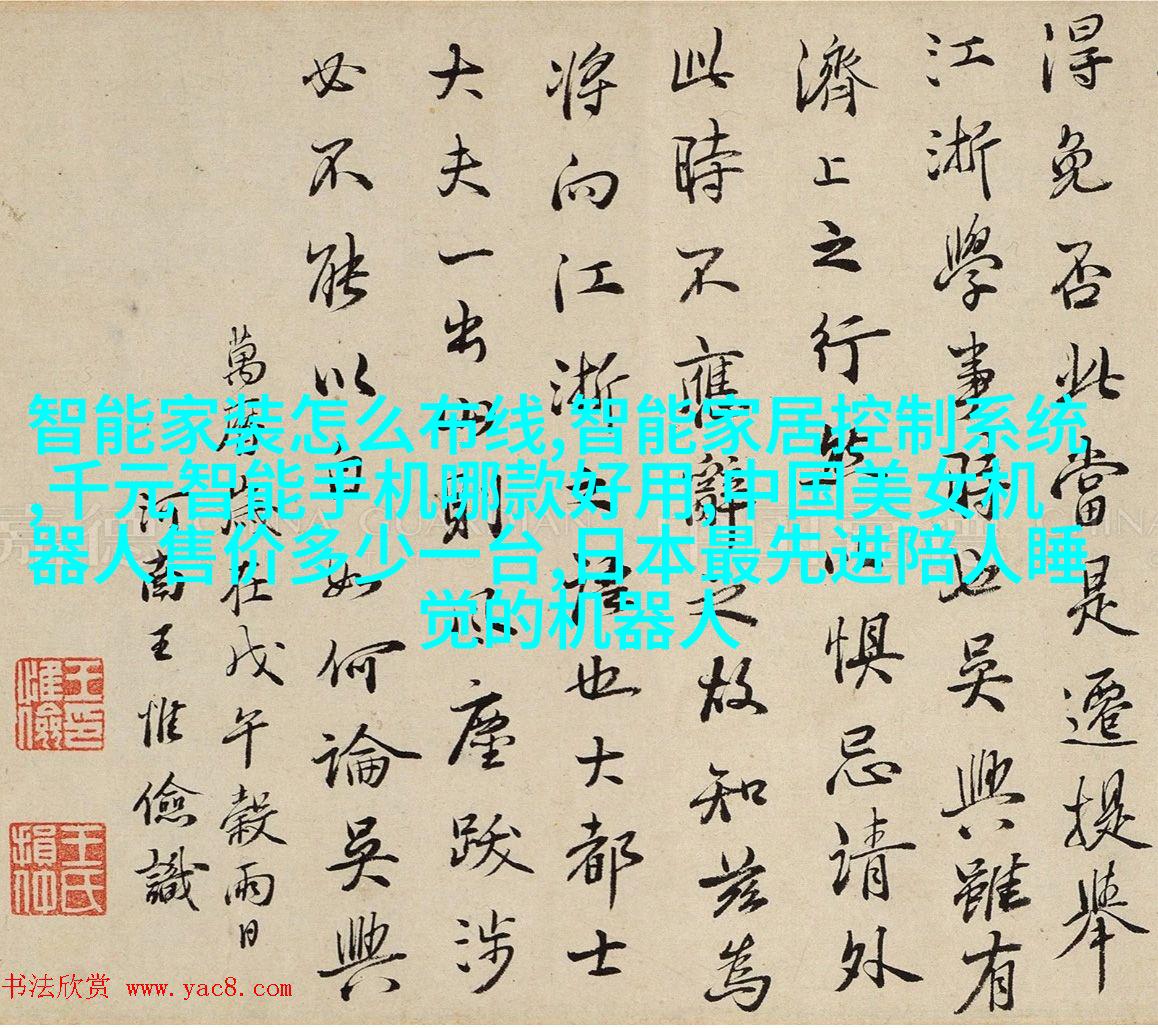 得免否此當是遷提舉
江浙學事時也吳興雖有
濟上之行皆以惧忌請外
此時不應辭之故知兹為
将向江浙語也大都士
大夫一出山則風塵跋涉
必不能以自如何論吳興
萬曆歲在戊午穀雨日
河南王惟儉識
王惟儉印
王氏損仲
智能家装怎么布线,智能家居控制系统
,千元智能手机哪款好用,中国美女机
器人售价多少一台,日本最先进陪人睡
觉的机器人
嘉德 CHINA GUARDIAN
书法欣赏 www.yac8.com